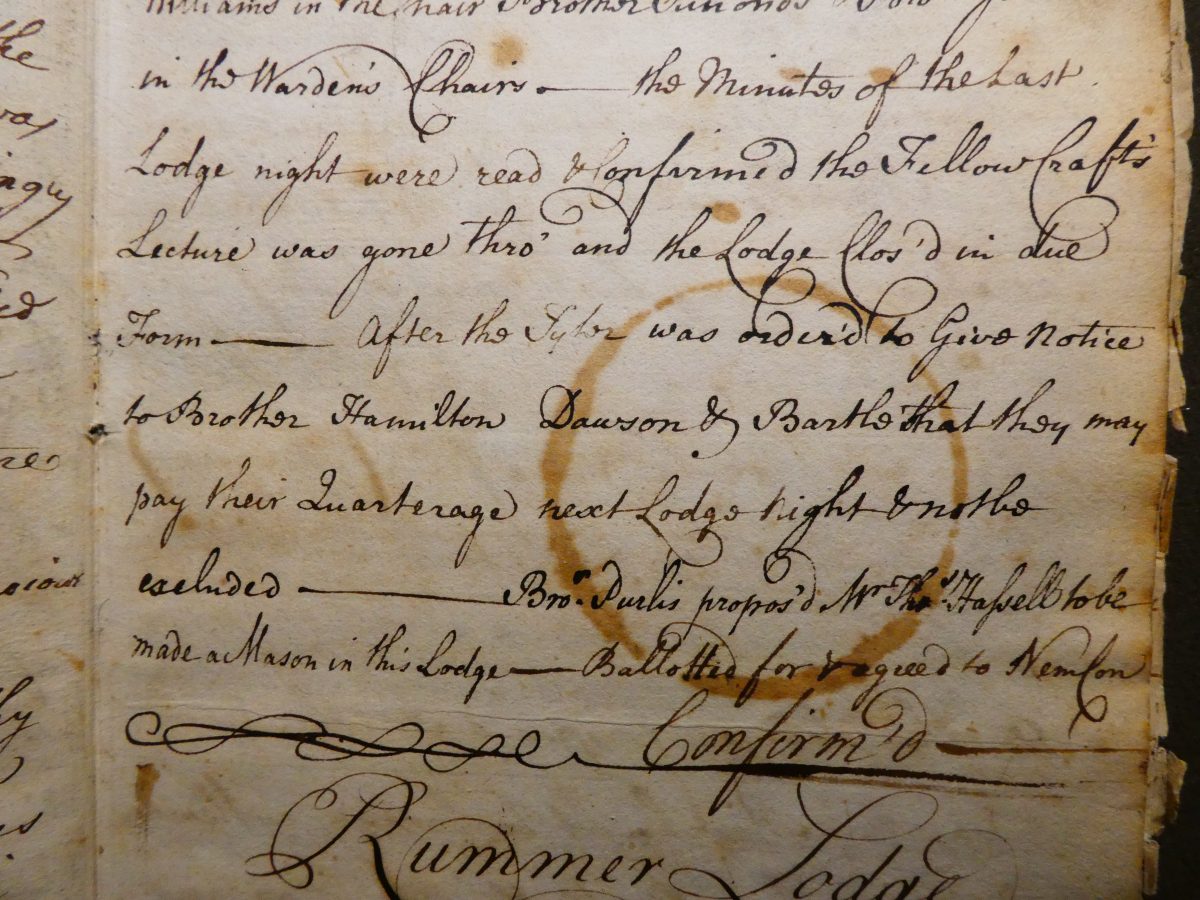 Williams in the Chair Brother
in the Wardens Chairs — the Minutes of the Last
Lodge night were read & Confirme'd the Fellow Craft's
Lecture was gone thro' and the Lodge Clos'd in due
Form — After the Tyler was order'd to Give Notice
to Brother Hamilton Dawson & Bartle that they may
pay their Quarterage next Lodge Night & not be
excluded — Bro.r Purlis propos'd Mr Tho.s Hassell to be
made a Mason in this Lodge — Ballotted for & agreed to Nem Con
Confirm'd —
Rummer Lodge
the